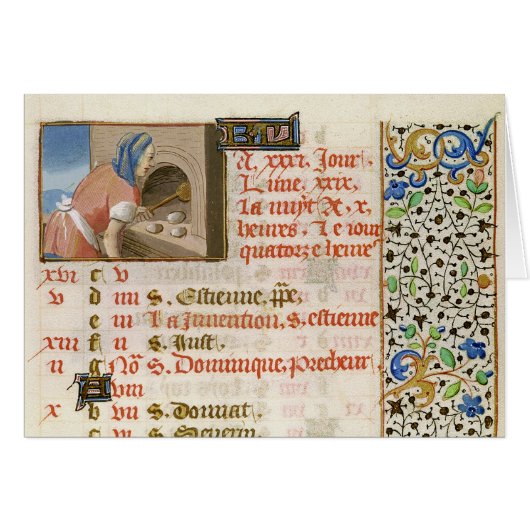 A xxxi Jour
Lune. xxix.
la nuyt A. x
heures. Le iour
quatorze heures
xvi c v
v d iiii s. Estienne, ppe.
e iii La Invention. s. estienne
xiii f ii s. Just.
ii g s. Dominique, precheur
A viii
x b vii s. Donnat.
c vi s. Severin.